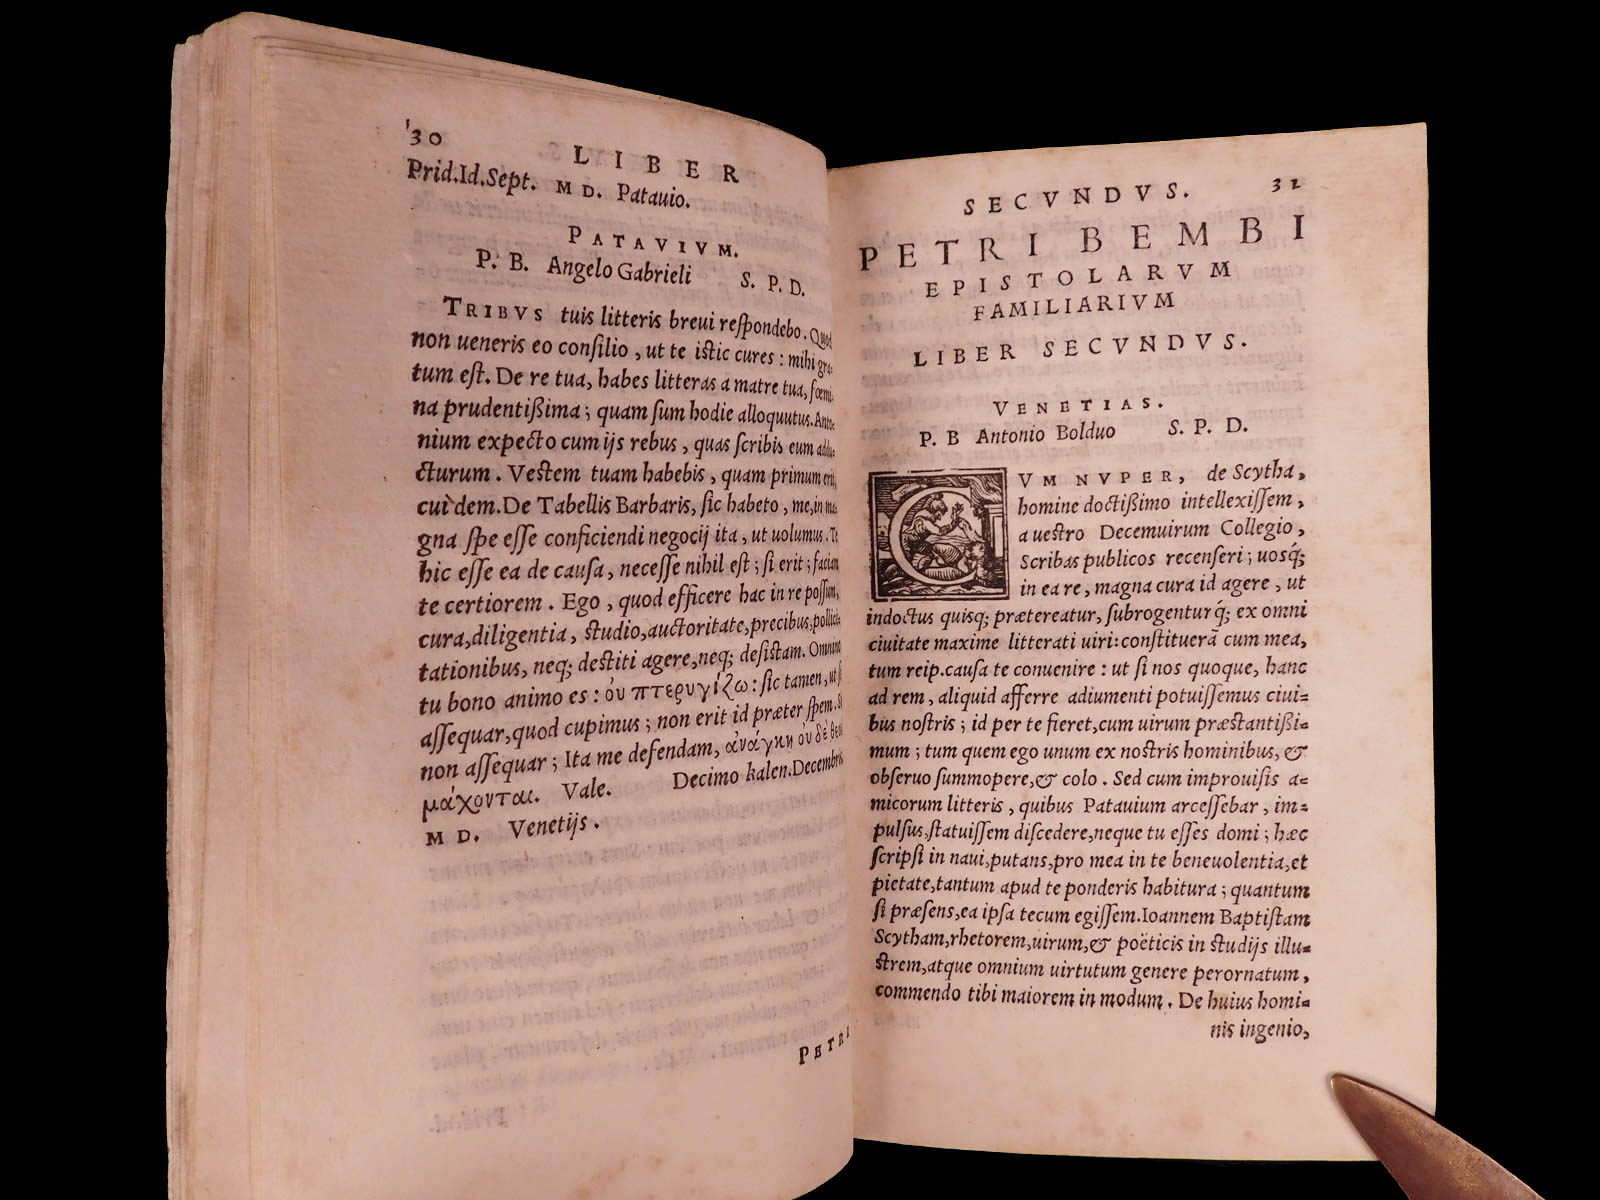 30
LIBER
Prid.Id.Sept. MD. Patauio.
PATAVIVM.
P. B. Angelo Gabrieli S. P. D.
TRIBVS tuis litteris breui reſpondebo. Quod
non ueneris eo conſilio, ut te iſtic cures: mihi gra-
tum eſt. De re tua, habes litteras a matre tua, fœmi-
na prudentißima; quam ſum hodie alloquutus. Anto-
nium expecto cum ijs rebus, quas ſcribis eum addu-
cturum. Veſtem tuam habebis, quam primum erit,
cui dem. De Tabellis Barbaris, ſic habeto, me, in ma-
gna ſpe eſſe conficiendi negocij ita, ut uolumus. Te
hic eſſe ea de cauſa, neceſſe nihil eſt; ſi erit; faciam
te certiorem. Ego, quod efficere hac in re poſſum,
cura, diligentia, ſtudio, auctoritate, precibus, pollici-
tationibus, neq; deſtiti agere, neq; deſiſtam. Omnino
tu bono animo es: οὐ πτερυγίζω: ſic tamen, ut
aſſequar, quod cupimus; non erit id præter ſpem.
non aſſequar; Ita me defendam, ἀνάγκη οὐδὲ θεοὶ
μάχονται. Vale. Decimo kalen. Decembris
MD. Venetijs.
PETRI
SECVNDVS. 31
PETRI BEMBI
EPISTOLARVM
FAMILIARIVM
LIBER SECVNDVS.
VENETIAS.
P. B Antonio Bolduo S. P. D.
CVM NVPER, de Scytha,
homine doctißimo intellexiſſem,
a ueſtro Decemuirum Collegio,
Scribas publicos recenſeri; uosq́;
in ea re, magna cura id agere, ut
indoctus quisq; prætereatur, ſubrogenturq́; ex omni
ciuitate maxime litterati uiri: conſtituerā cum mea,
tum reip. cauſa te conuenire: ut ſi nos quoque, hanc
ad rem, aliquid afferre adiumenti potuiſſemus ciui=
bus noſtris; id per te fieret, cum uirum præſtantißi=
mum; tum quem ego unum ex noſtris hominibus, &
obſeruo ſummopere, & colo. Sed cum improuiſis a=
micorum litteris, quibus Patauium arceſſebar, im=
pulſus, ſtatuiſſem diſcedere, neque tu eſſes domi; hæc
ſcripſi in naui, putans, pro mea in te beneuolentia, et
pietate, tantum apud te ponderis habitura; quantum
ſi præſens, ea ipſa tecum egiſſem. Ioannem Baptiſtam
Scytham, rhetorem, uirum, & poëticis in ſtudijs illu=
ſtrem, atque omnium uirtutum genere perornatum,
commendo tibi maiorem in modum. De huius homi=
nis ingenio,